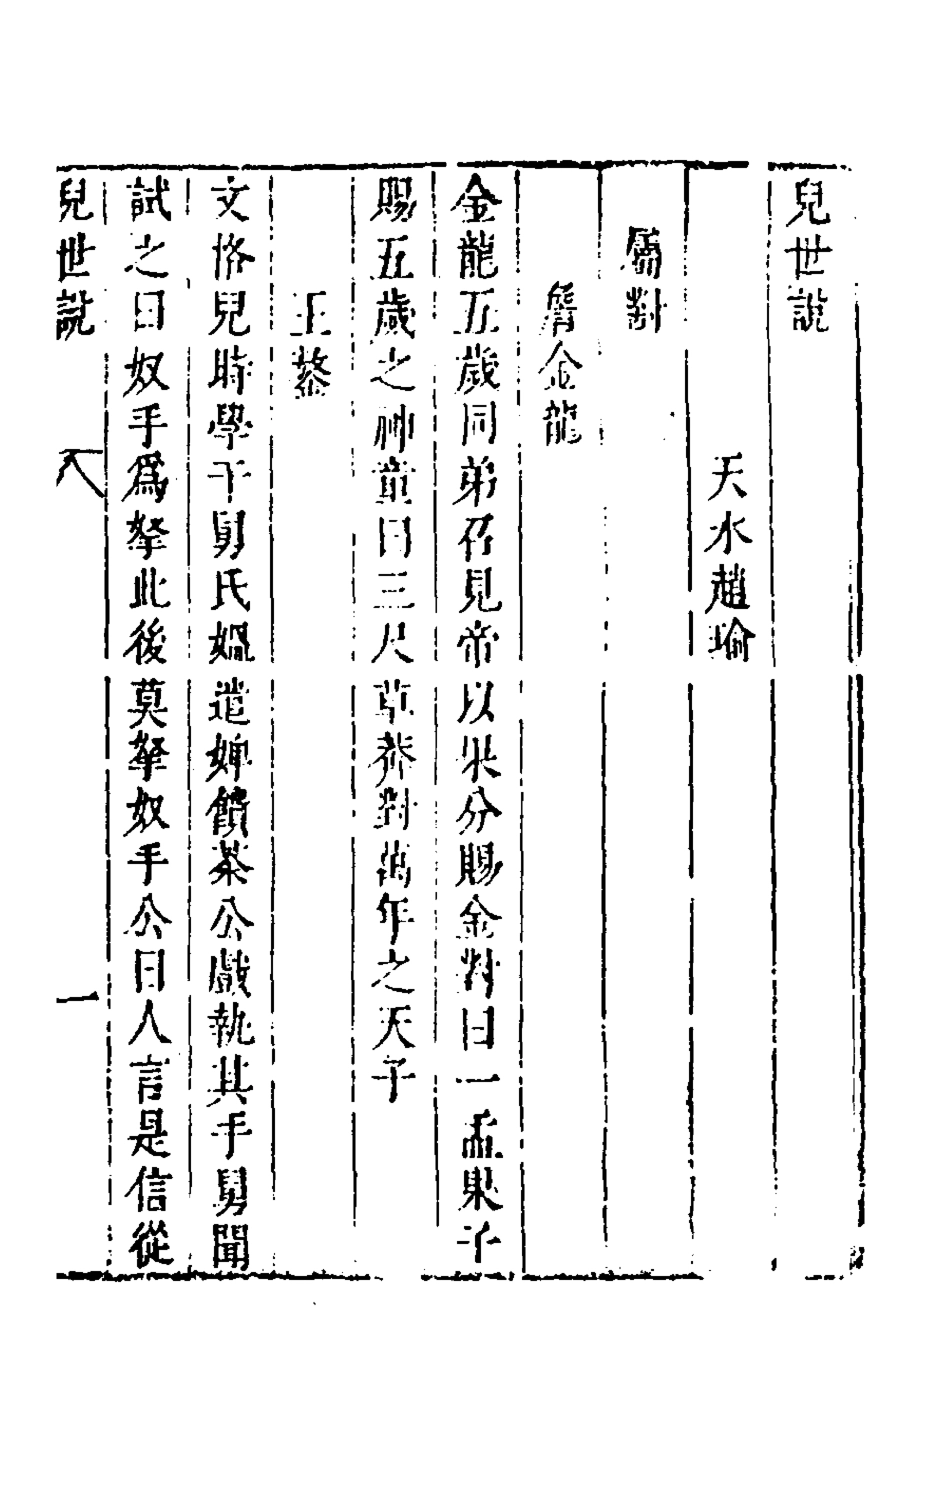 兒世說
天水趙瑜
屬對
詹金龍
金龍五歲同弟召見帝以果分賜金對曰一盂果子
賜五歲之神童曰三尺草莽對萬年之天子
王鏊
文恪兒時學于舅氏媼遣婢饋茶公戲執其手舅聞
試之曰奴手爲拏此後莫拏奴手公曰人言是信從
兒世說
一